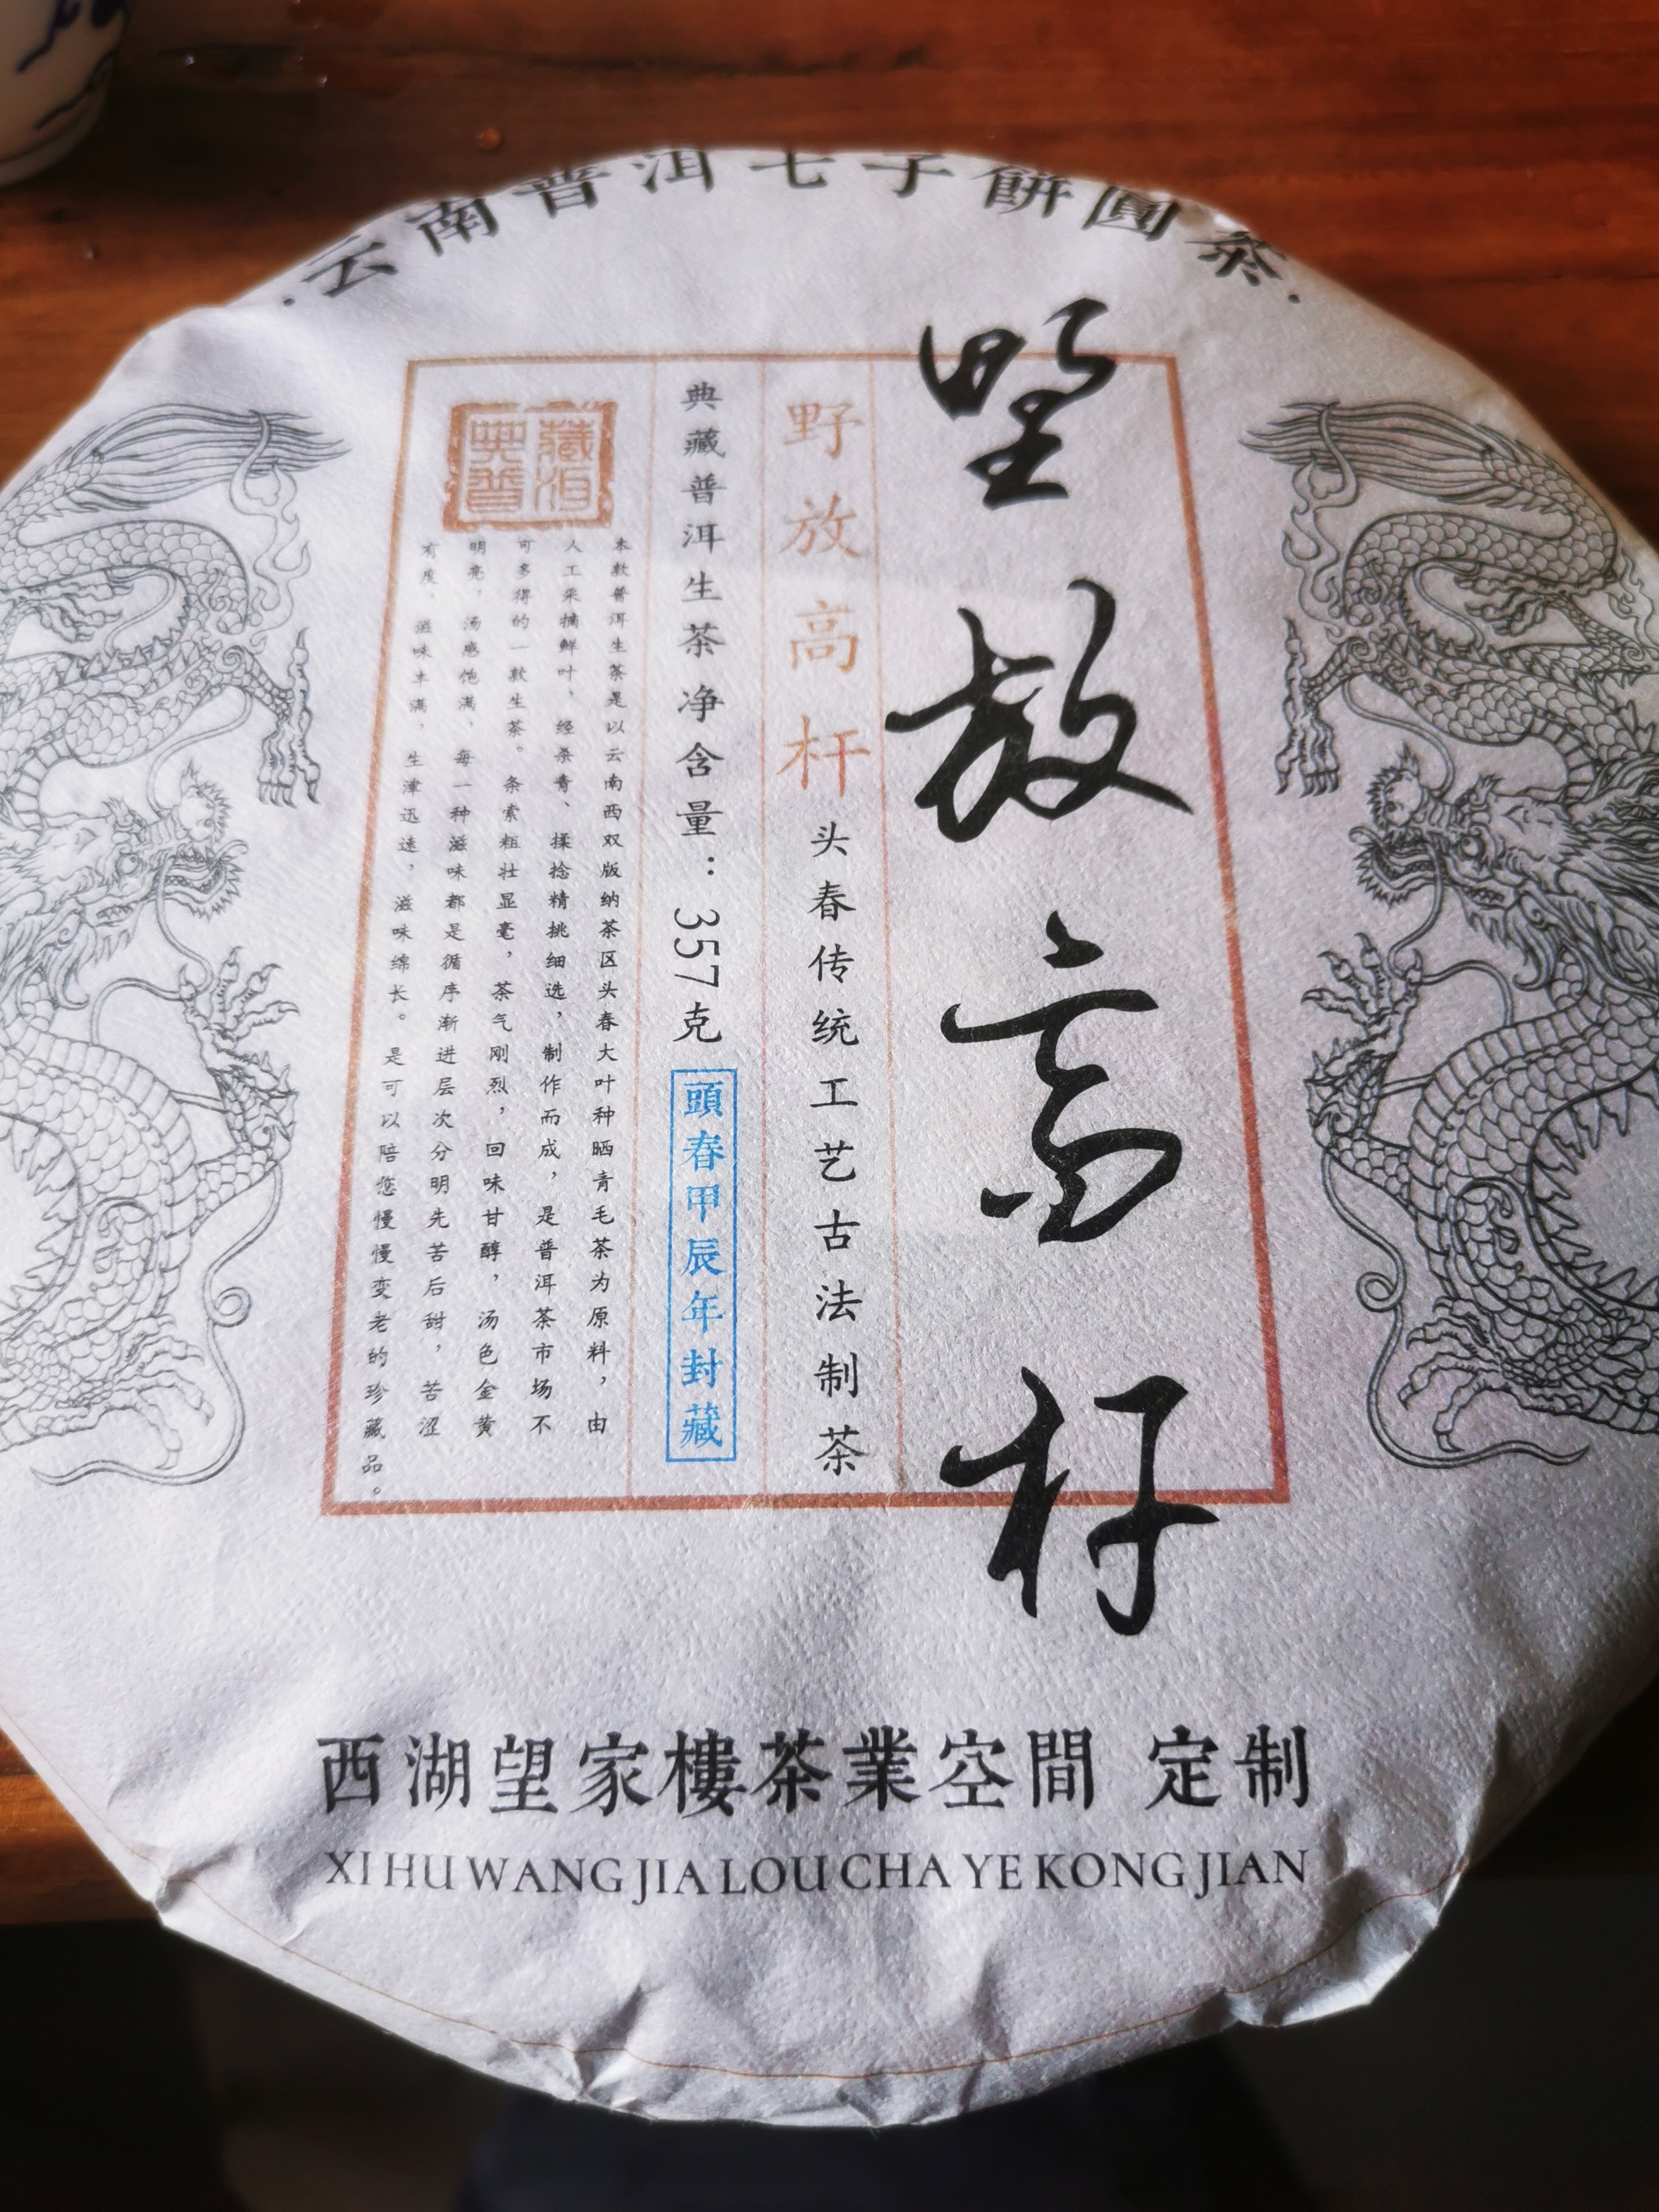 云南普洱七子餅圓茶
野放高杆
野放高杆
头春传统工艺古法制茶
典藏普洱生茶净含量：357克
頭春甲辰年封藏
典藏普洱
本款普洱生茶是以云南西双版纳茶区头春大叶种晒青毛茶为原料，由
人工采摘鲜叶，经杀青、揉捻精挑细选，制作而成，是普洱茶市场不
可多得的一款生茶。条索粗壮显毫，茶气刚烈，回味甘醇，汤色金黄
明亮，汤感饱满，每一种滋味都是循序渐进层次分明先苦后甜，苦涩
有度，滋味丰满，生津迅速，滋味绵长。是可以陪您慢慢变老的珍藏品。
西湖望家樓茶業空間 定制
XI HU WANG JIA LOU CHA YE KONG JIAN